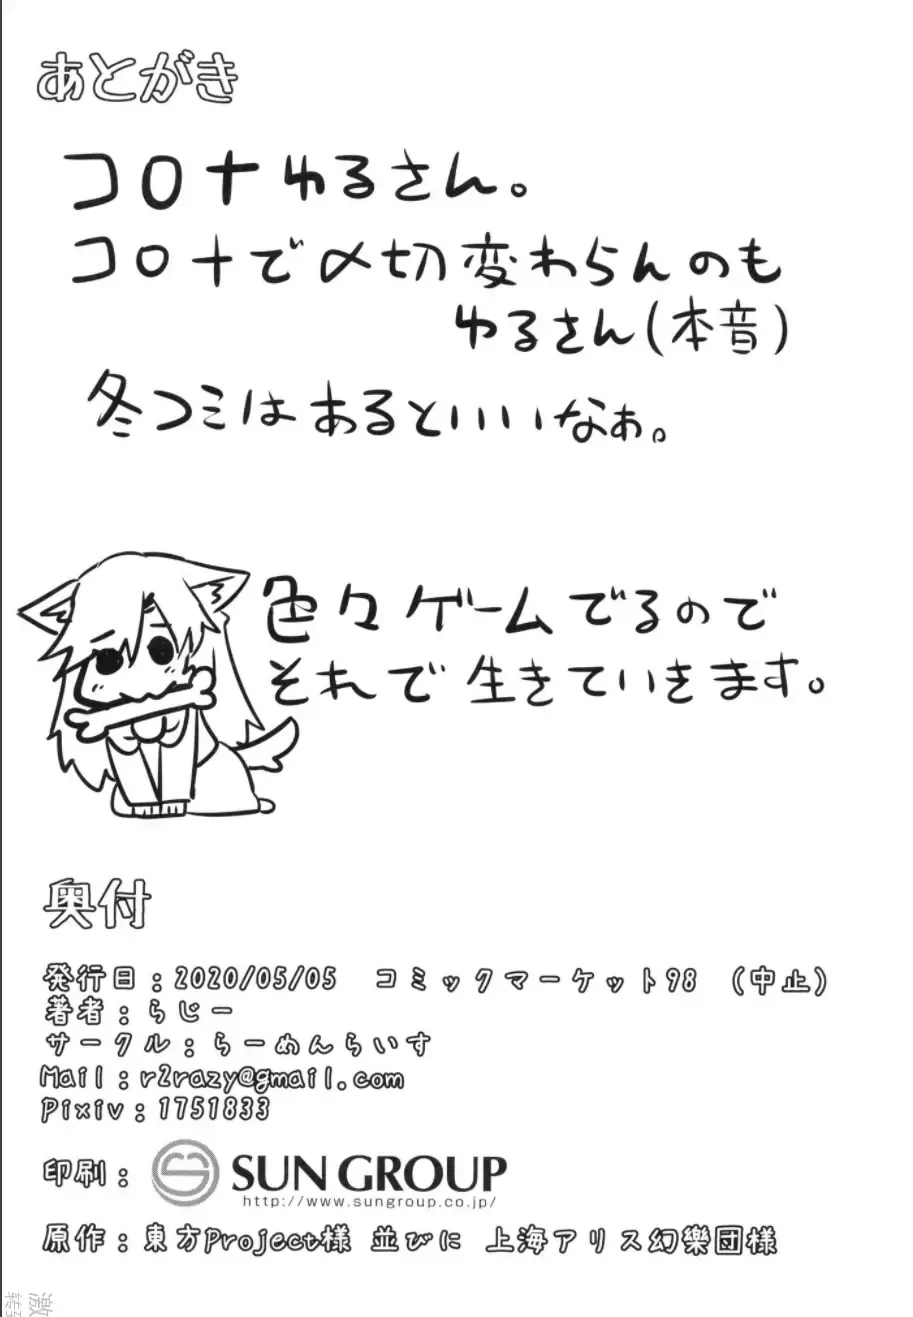 あとがき
コロナゆるさん。
コロナで〆切変わらんのも
ゆるさん(本音)
冬コミはあるといいなぁ。
色々ゲームでるので
それで生きていきます。
奥付
発行日:2020/05/05 コミックマーケット98 (中止)
著者:らじー
サークル:らーめんらいす
Mail:r2razy@gmail.com
Pixiv:1751833
印刷: SUN GROUP
http://www.sungroup.co.jp/
原作:東方Project様 並びに 上海アリス幻樂団様